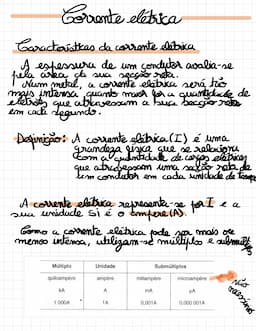 Corrente elétrica
Características da corrente elétrica
A espessura de um condutor avalia-se
pela área da sua secção reta.
Num metal, a corrente elétrica será tão
mais intensa quanto maior for a quantidade de
eletrões que atravessam a sua secção reta
em cada segundo.
Definição: A corrente elétrica (I) é uma
grandeza física que se relaciona
com a quantidade de cargas elétricas
que atravessam uma secção reta de
um condutor em cada unidade de tempo
A corrente elétrica representa-se por I e a
sua unidade SI é o ampere (A).
Como a corrente elétrica pode ser mais ou
menos intensa, utilizam-se múltiplos e submúltiplos
Múltiplo Unidade Submúltiplos
quiloampère ampère miliampère microampère
kA A mA µA
1 000A 1A 0,001A 0,000 001A
não